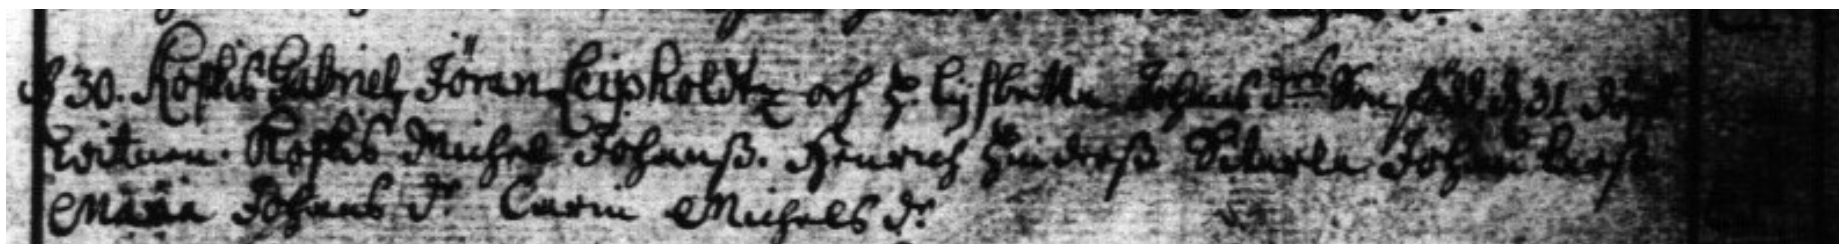 d 30. Koskis Gabriel, Jören Leipholdtz och h. Lijsbetta Johans drs Son, född d 31 döpt
Witnen. Koskis Michel Johanß. Henrich Hinderß Johan Larß
Maria Johans dr Carin Michels dr